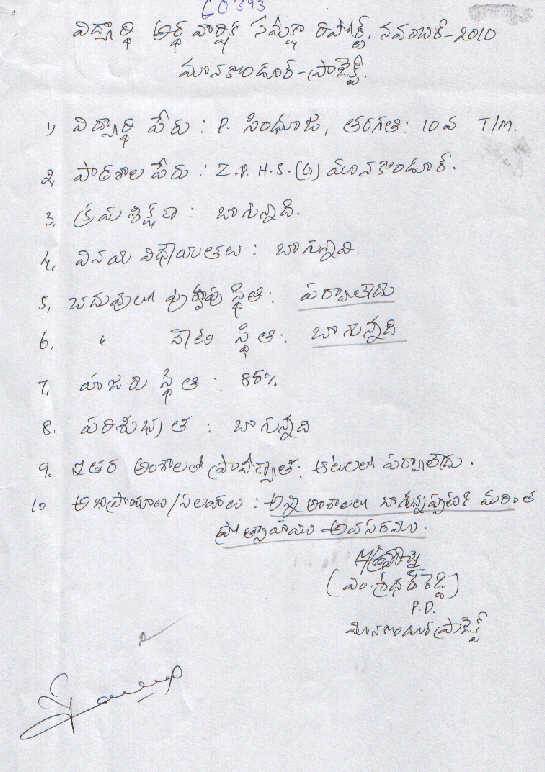 CO393
విద్యార్థి అర్థ వార్షిక సమగ్ర రిపోర్ట్, నవంబర్-2010
మానకొండూర్-ప్రాజెక్ట్.
1, విద్యార్థి పేరు : P. సింధూజ, తరగతి: 10వ T/M.
2, పాఠశాల పేరు : Z.P.H.S.(G) మానకొండూర్.
3. క్రమశిక్షణ : బాగున్నది.
4. వినయ విధేయతలు : బాగున్నవి
5, చదువులో పూర్వపు స్థితి : పర్వాలేదు
6. " స్థితి : బాగున్నది
7. హాజరు స్థితి : 86%
8. పరిశుభ్రత : బాగున్నది
9. ఇతర అంశాలలో ప్రావీణ్యత : ఆటలలో పర్వాలేదు.
10 అభిప్రాయాలు/సలహాలు : అన్ని అంశాలలో బాగున్నప్పటికి మరింత
ప్రోత్సాహము అవసరము.
(ఎం.శ్రీధర్ రెడ్డి)
P.D.
మానకొండూర్ ప్రాజెక్ట్